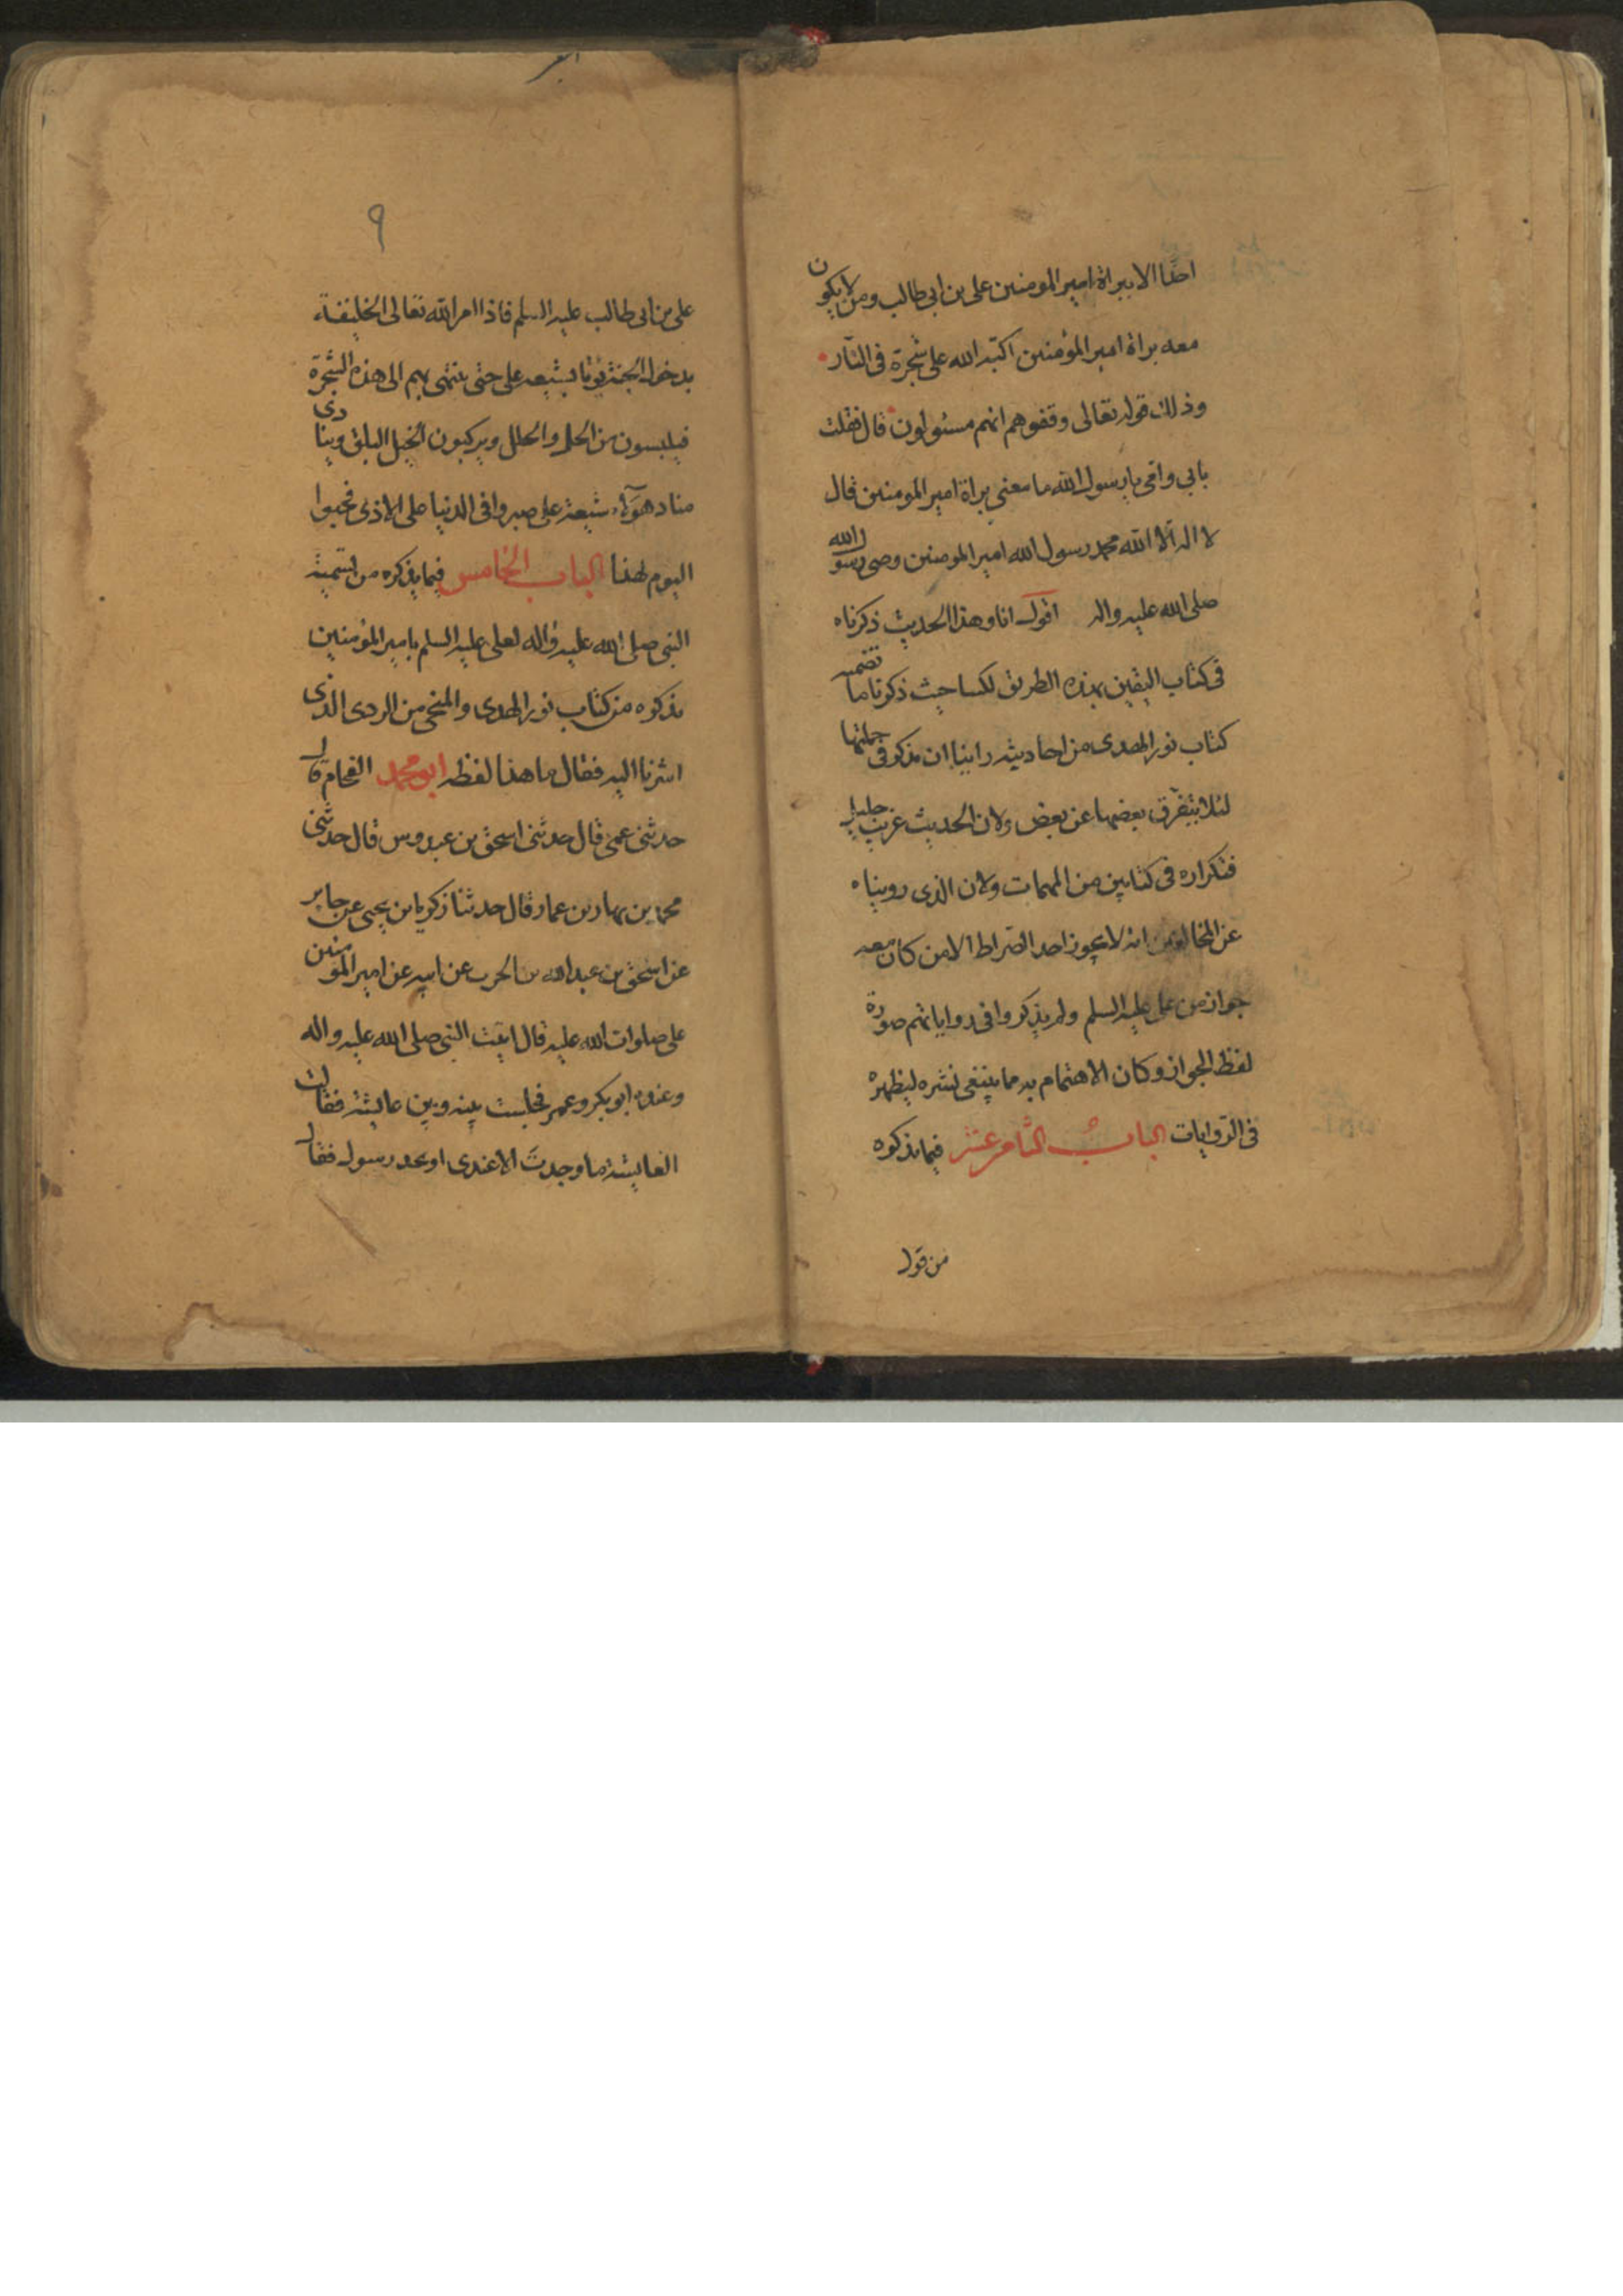 احدًا الا ببراة امير المومنين على بن ابى طالب ومن لا يكون
معه براة امير المؤمنين اكبه الله على شجرة فى النار
وذلك قوله تعالى وقفوهم انهم مسئولون قال فقلت
بابى وامى يا رسول الله ما معنى براة امير المومنين قال
لا اله الا الله محمد رسول الله امير المومنين وصى رسول الله
صلى الله عليه واله اقول انا وهذا الحديث ذكرناه
فى كتاب اليقين بهذه الطريق لكنا حيث ذكرنا ما تضمنه
كتاب نور الهدى من احاديثه راينا ان نذكر فى جملتها
لئلا يتفرق بعضها عن بعض ولان الحديث غريب جليل
فتكراره فى كتابين من المهمات ولان الذى رويناه
عن المخالفين انه لا يجوز احد الصراط الا من كان معه
جواز من على عليه السلم ولم يذكروا فى رواياتهم صورة
لفظ الجواز وكان الاهتمام به مما ينبغى نشره ليظهره
فى الروايات الباب الثامن عشر فيما نذكره
من قول
٩
على بن ابى طالب عليه السلم فاذا امر الله تعالى الخليفة
بدخول الجنة يؤتا بشيعة على حتى ينتهى بهم الى هذه الشجرة
فيلبسون من الحلى والحلل ويركبون الخيل البلق وينادى
مناد هؤلاء شيعة على صبروا فى الدنيا على الاذى فحبوا
اليوم لهذا الباب الخامس فيما نذكره من تسمية
النبى صلى الله عليه واله لعلى عليه السلم بامير المؤمنين
نذكره من كتاب نور الهدى والمنجى من الردى الذى
اشرنا اليه فقال ما هذا لفظه ابو محمد الفحام قال
حدثنى عمى قال حدثنى اسحق بن عبدوس قال حدثنى
محمد بن بهار بن عمار قال حدثنا زكريا بن يحيى عن جابر
عن اسحق بن عبد الله بن الحرب عن ابيه عن امير المومنين
على صلوات الله عليه قال اتيت النبى صلى الله عليه واله
وعنده ابو بكر وعمر فجلست بينه وبين عايشة فقالت
العايشة ما وجدت الا فخذى او فخذ رسول فقال